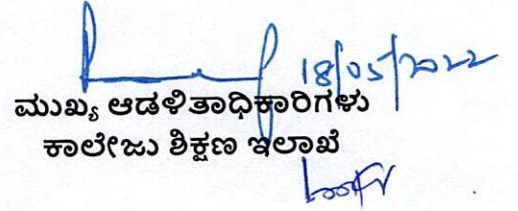 18/05/2022
ಮುಖ್ಯ ಆಡಳಿತಾಧಿಕಾರಿಗಳು
ಕಾಲೇಜು ಶಿಕ್ಷಣ ಇಲಾಖೆ